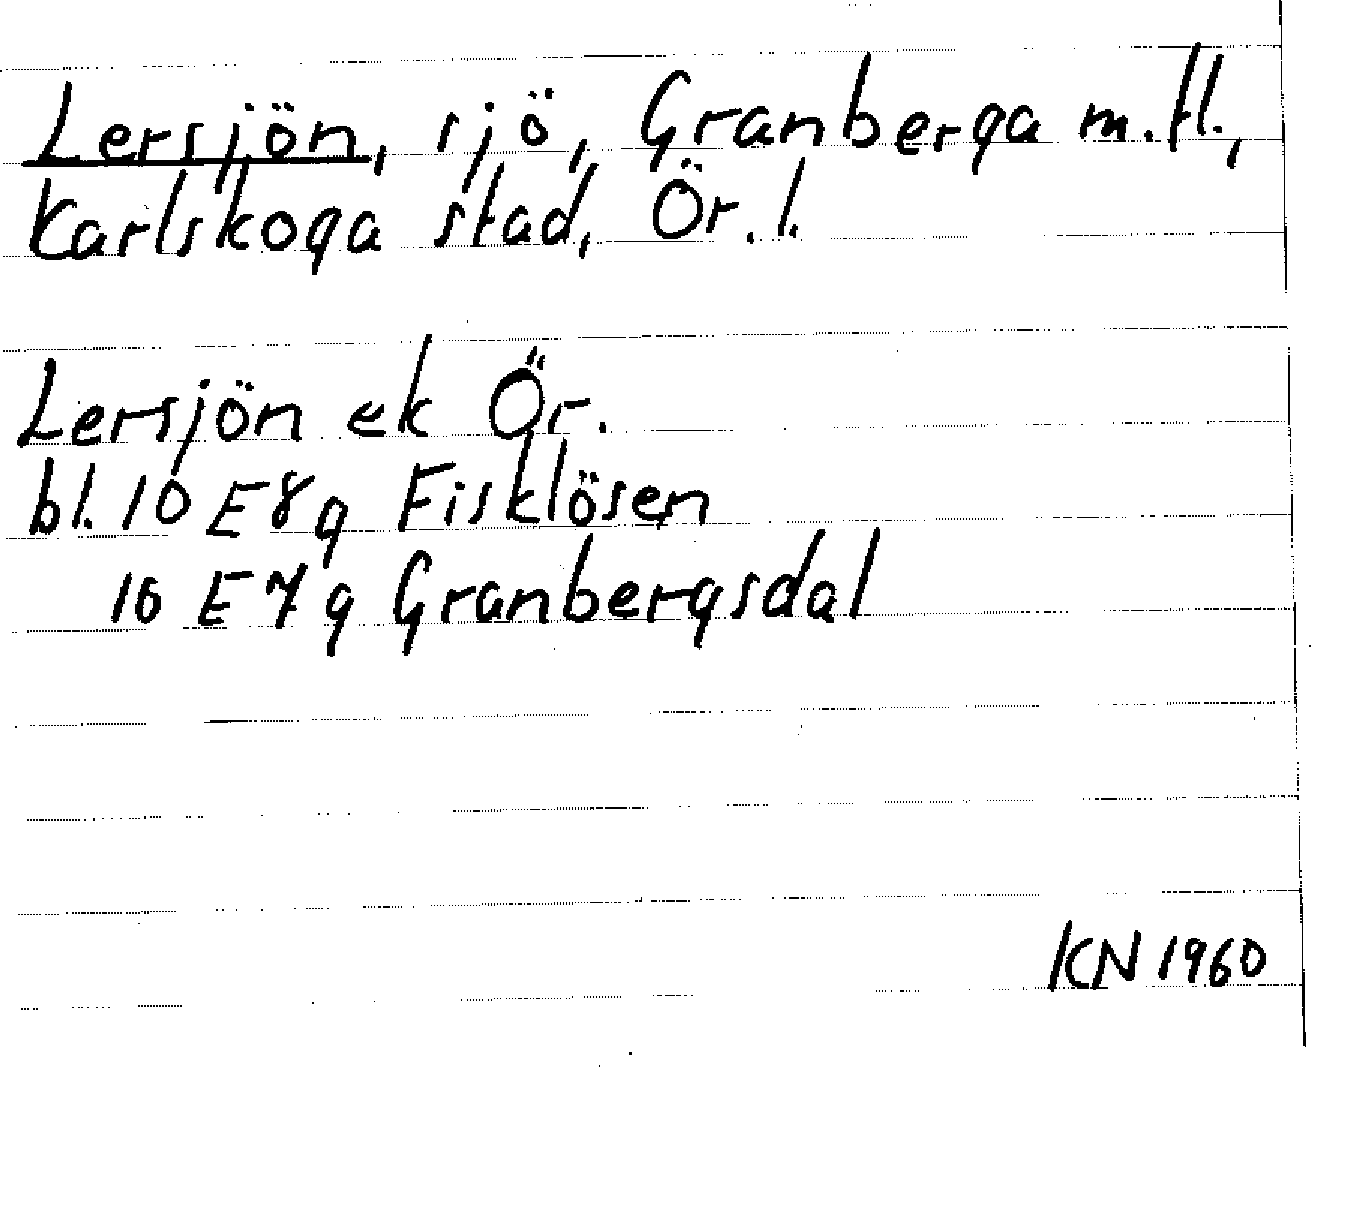 Lersjön, sjö, Granberga m.fl.,
Karlskoga stad, Ör.l.
Lersjön ek Ör.
bl. 10 E 8g Fisklösen
10 E 7g Granbergsdal
KN 1960